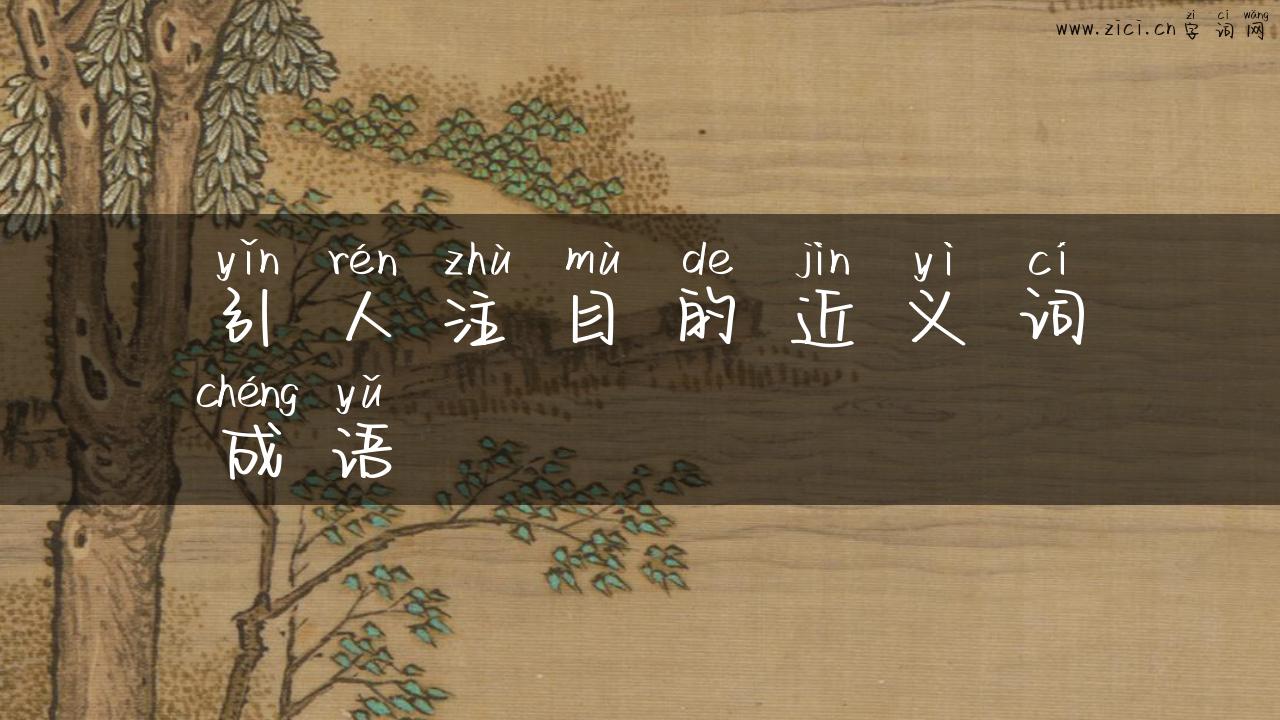 zì cí wǎng
www.zici.cn 字词网
yǐn rén zhù mù de jìn yì cí
引人注目的近义词
chéng yǔ
成语